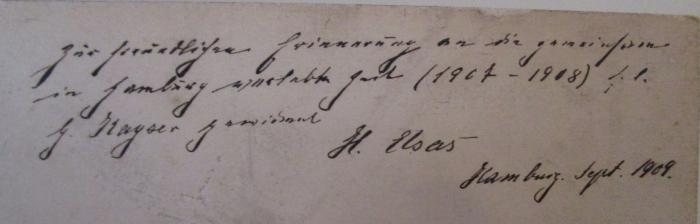 Zur freundlichen Erinnerung an die gemeinsam
in Hamburg verlebte Zeit (1907 - 1908)
H. Kayser gewidmet
H. Elsas
Hamburg. Sept. 1909.